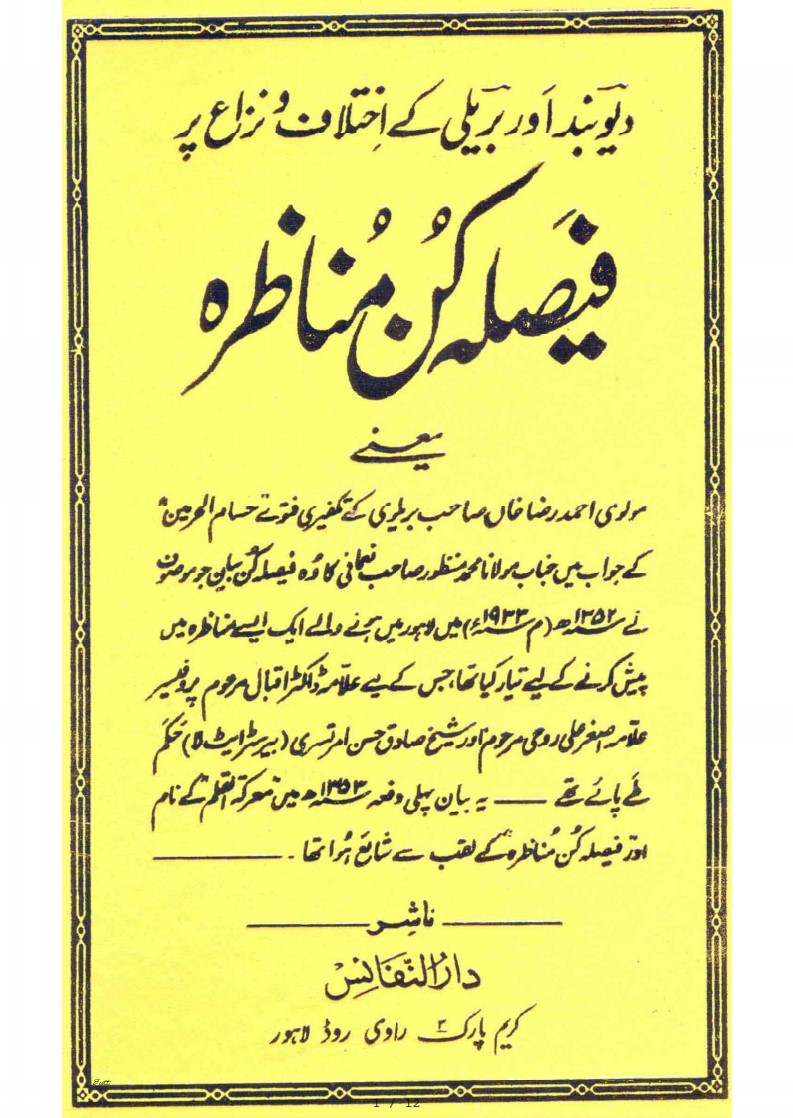 دیوبند اَور بریلی کے اِختلاف و نزاع پر
فَیصَلہ کُن مُناظرہ
یعنے
مولوی احمد رضا خاں صاحب بریلوی کے تکفیری فتوے "حسام الحرمین"
کے جواب میں جناب مولانا محمد منظور صاحب نعمانی کا وُہ فیصلہ کُن بیان جو موصوف
نے ۱۳۵۲ھ (م ۱۹۳۳ء) میں لاہور میں ہونے والے ایک ایسے مناظرہ میں
پیش کرنے کے لیے تیار کیا تھا، جس کے لیے علامہ ڈاکٹر اقبال مرحوم پروفیسر
علامہ اصغر علی روحی مرحوم اور شیخ صادق حسن امرتسری (بیرسٹر ایٹ لا) حَکَم
طے پائے تھے —— یہ بیان پہلی دفعہ ۱۳۵۳ھ میں "معرکۃ القلم" کے نام
اور "فیصلہ کُن مُناظرہ" کے لقب سے شایع ہُوا تھا ۔
ناشِر
دارُالنّفائس
کریم پارک ۲ راوی روڈ لاہور
1 / 12